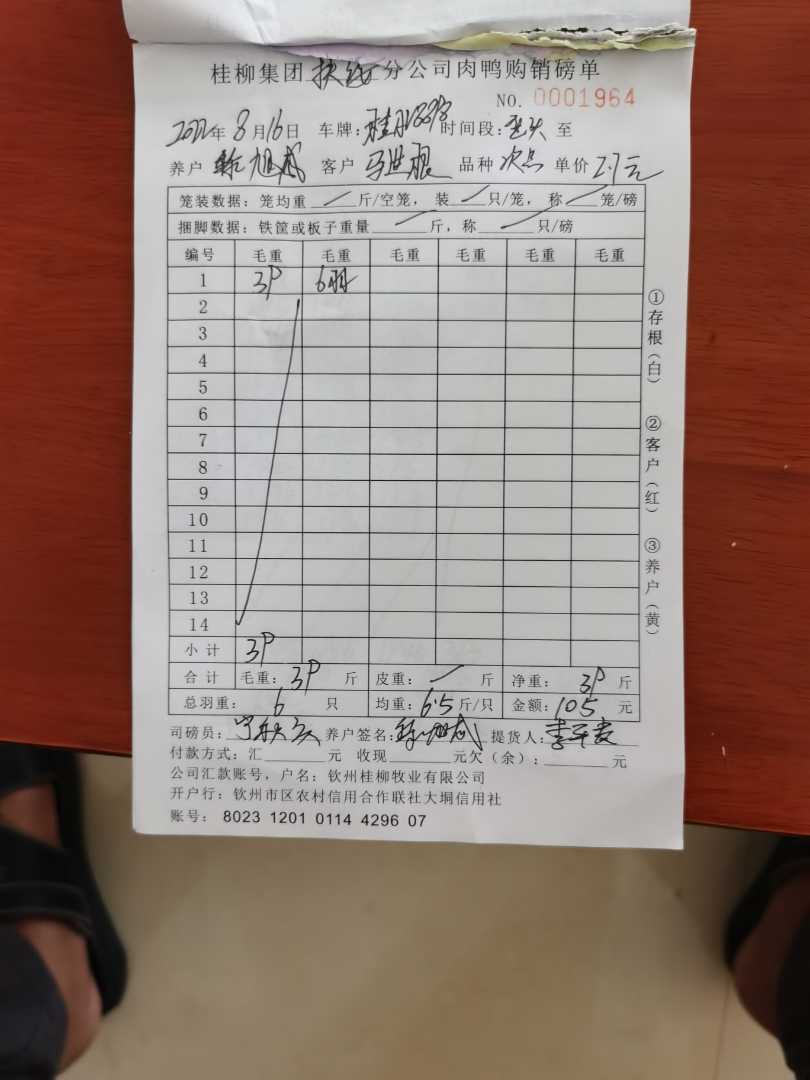 桂柳集团 扶绥 分公司肉鸭购销磅单
NO. 0001964
2022年 8月16日 车牌: 时间段: 至
养户 旭成 客户 马世 品种 次品 单价 2.7元
笼装数据: 笼均重 / 斤/空笼, 装 / 只/笼, 称 / 笼/磅
捆脚数据: 铁筐或板子重量 / 斤, 称 / 只/磅
编号 毛重 毛重 毛重 毛重 毛重 毛重
1 39 6羽
2
3
4
5
6
7
8
9
10
11
12
13
14
小计 39
合计 毛重: 39 斤 皮重: / 斤 净重: 39 斤
总羽重: 6 只 均重: 6.5 斤/只 金额: 105 元
司磅员: 养户签名: 提货人:
付款方式: 汇 元 收现 元欠(余): 元
公司汇款账号, 户名: 钦州桂柳牧业有限公司
开户行: 钦州市区农村信用合作联社大垌信用社
账号: 8023 1201 0114 4296 07
①存根(白) ②客户(红) ③养户(黄)